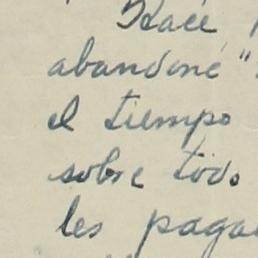 Hace
abandoné "
el tiempo
sobre todo
les paga